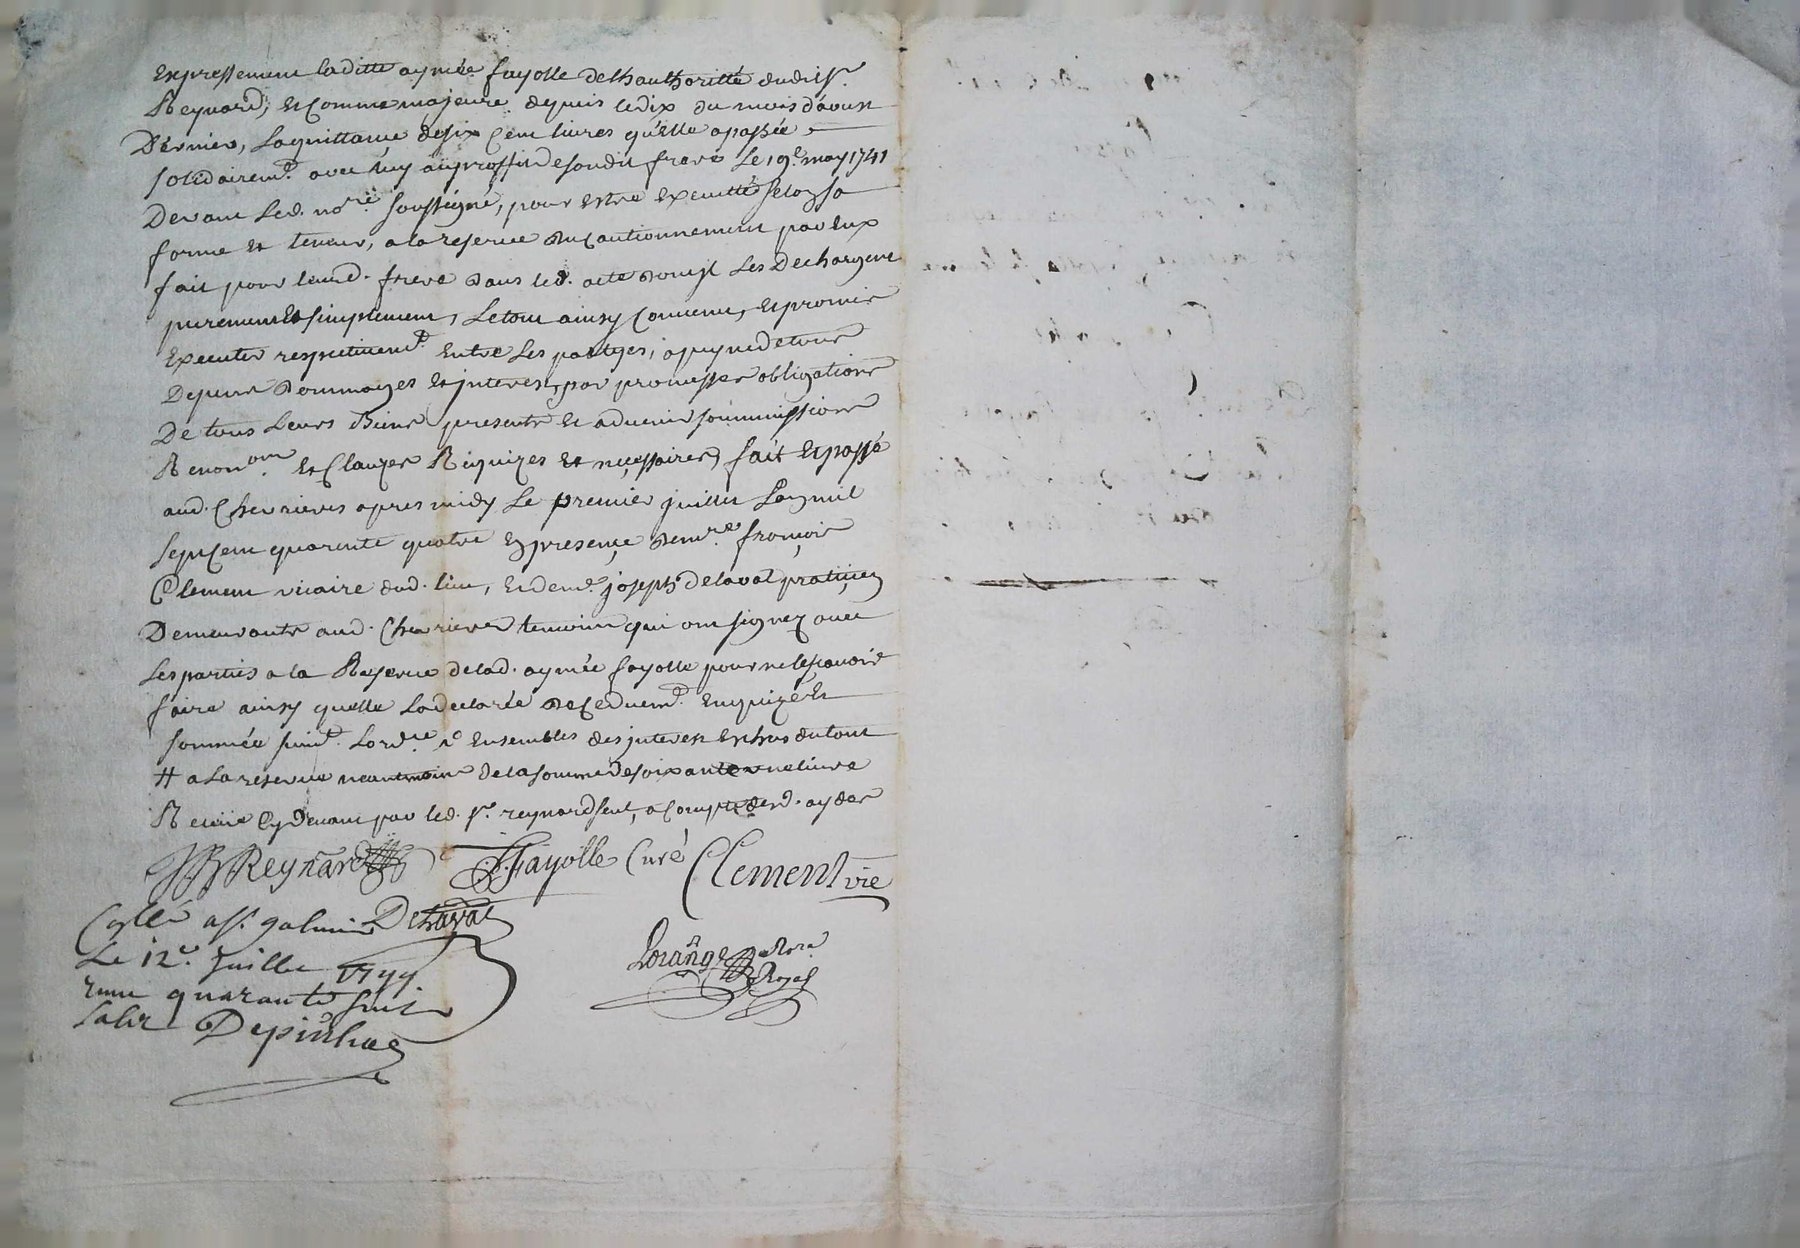 Expressement laditte aymée fayolle de lhauthoritté dudit sr
Reynard, et comme majeure depuis le dix du mois d'aoust
Dernier, la quittance de six cent livres qu'elle a passée
solidairemt avec luy au proffit de son dit frere le 19e may 1741
Devant led. nore soussigné, pour estre executté selon sa
forme et teneur, a la reserve du cautionnement par eux
fait pour leurd. frere dans led. acte dont il les dechargent
purement et simplement, le tout ainsy convenu, et promis
Executer respectivemt entre les partyes, a peyne de tous
Depens dommages et interest, par promesses obligations
De tous leurs Biens presents et advenir soummissions
Renonons et clauzes Requizes et necessaires, fait et passé
aud. Chevrieres apres midy le premier juillet l'an mil
sept cent quarente quatre en presence de mre françois
Clement vicaire dud. lieu, et de me joseph delaval praticien
Demeurants aud. Chevrieres temoins qui ont signez avec
les parties a la Reserve de lad. aymée fayolle pour ne le sçavoir
faire ainsy quelle la declarée de ce duemt enquizé et
sommée suivt lordce # ensembles des interest echus du tout
# a la reserve neantmoins de la somme de soixante une livre
Receue cy devant par led. sr. reynard seul, a compte desd. aydes
Reynard Fayolle Curé Clement vic
Collé a st. galmier Delaval
Le 12e. Juillet 1744 Lorange nore Royal
reçu quarante huit
sols Depinhac